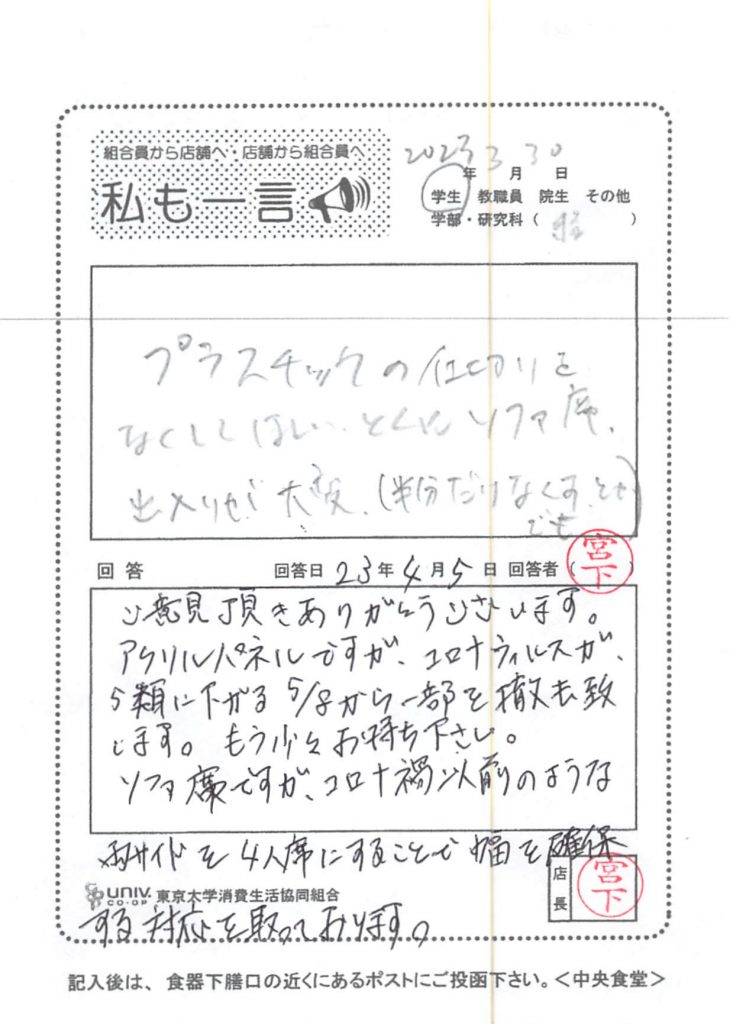 組合員から店舗へ・店舗から組合員へ
私も一言
2023 年 3 月 30 日
学生 教職員 院生 その他
学部・研究科 ( )
プラスチックの仕切りを
なくしてほしい。とくにソファ席、
出入りが大変。(半分だけなくす、とか
でも)
回答 回答日 23年 4月 5日 回答者 (宮下)
ご意見頂きありがとうございます。
アクリルパネルですが、コロナウィルスが、
5類に下がる 5/8から一部を撤去致
します。もう少々お待ち下さい。
ソファ席ですが、コロナ禍以前のような
両サイドを4人席にすることで幅を確保
UNIV. CO-OP 東京大学消費生活協同組合
店長 宮下
する対応を取っております。
記入後は、食器下膳口の近くにあるポストにご投函下さい。＜中央食堂＞